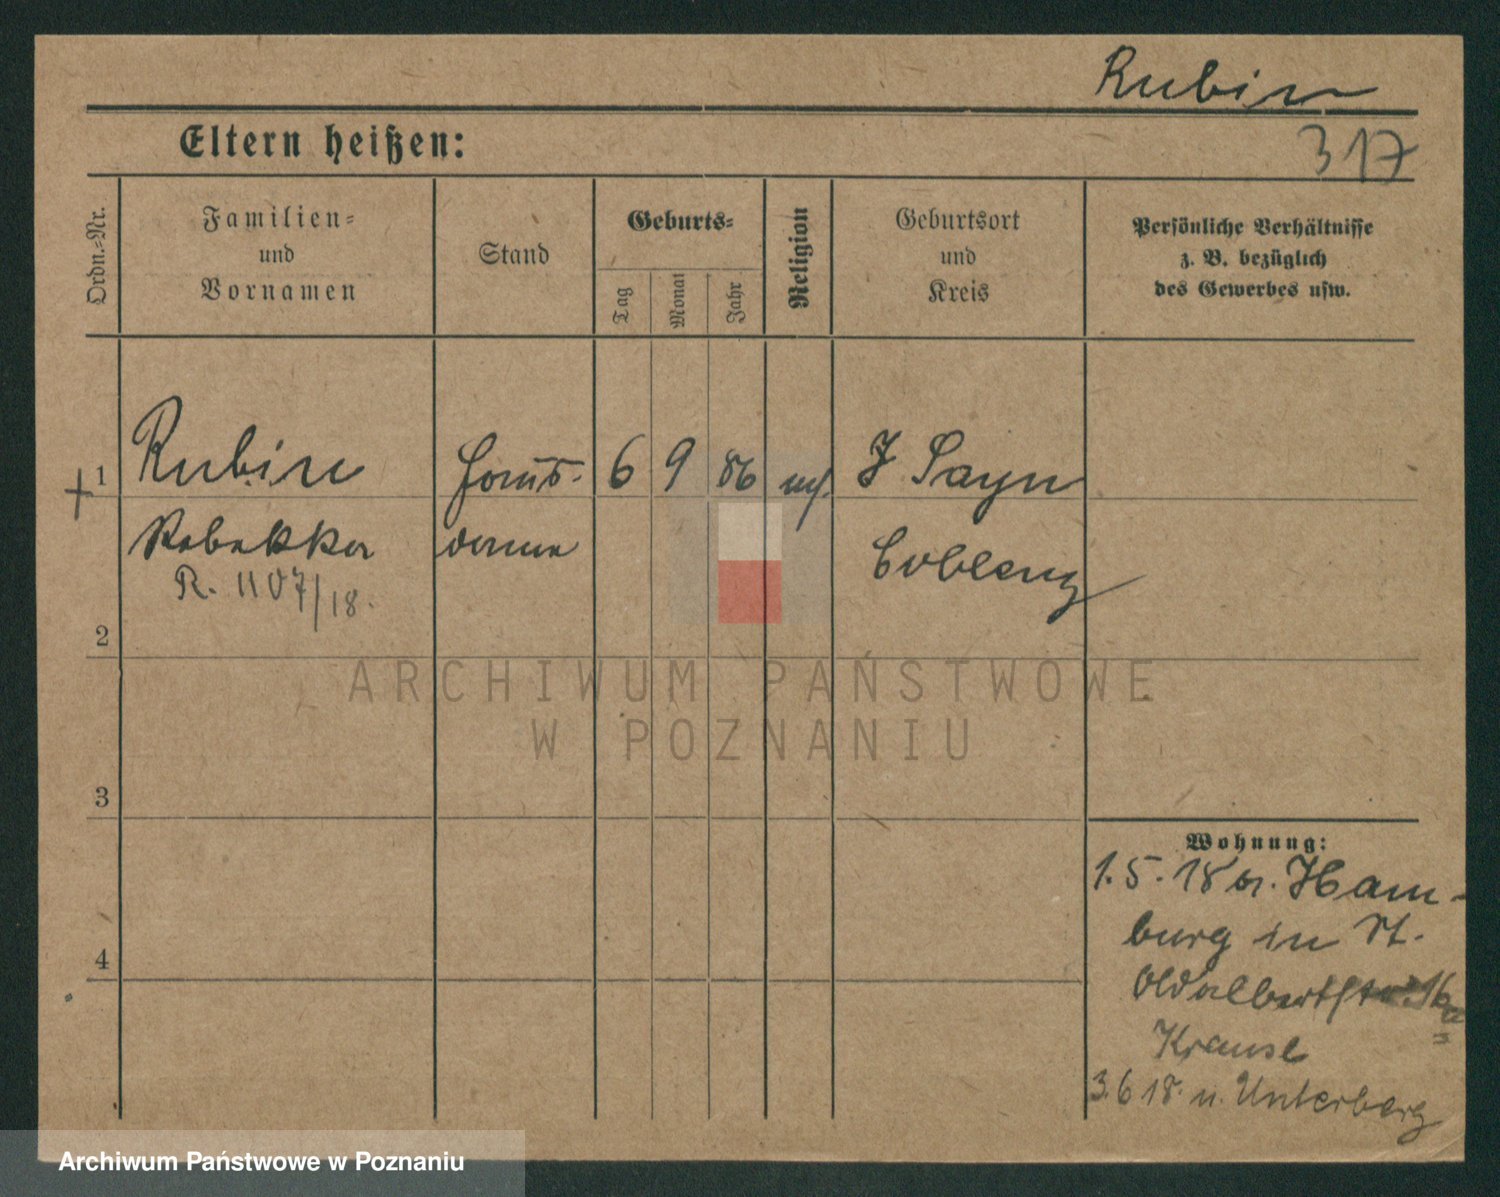 Rubin
317
Eltern heißen:
Ordn.=Nr.
Familien=
und
Vornamen
Stand
Geburts=
Tag
Monat
Jahr
Religion
Geburtsort
und
Kreis
Persönliche Verhältnisse
z. B. bezüglich
des Gewerbes usw.
+ 1 Rubin Haus- 6 9 86 J Sayn
Rebekka dame Coblenz
R. 1107/18.
2
ARCHIWUM PAŃSTWOWE
W POZNANIU
3
Wohnung:
1.5.18 a. Ham-
burg in St.
16
Krause
4
3.6 18. n. Unterberg
Archiwum Państwowe w Poznaniu